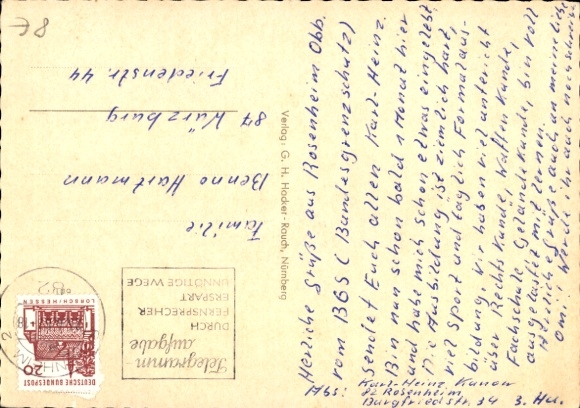 Herzliche Grüße aus Rosenheim Obb.
vom BGS (Bundesgrenzschutz)
sendet Euch allen Karl-Heinz.
Bin nun schon bald 1 Monat hier
und habe mich schon etwas eingelebt.
Die Ausbildung ist ziemlich hart,
viel Sport und täglich Formalaus-
bildung. Wir haben viel unterricht
über Rechtskunde, Waffenkunde,
Fachschule, Geländekunde, bin voll
ausgelastet mit lernen.
Herzliche Grüße auch an meine liebe
Omi! Werde ihr auch noch schreiben
Abs: Karl-Heinz
82 Rosenheim
Burgfriedstr. 34 3. Hu.
Verlag: G. H. Hacker-Rauch, Nürnberg
Telegramm-
aufgabe
DURCH
FERNSPRECHER
ERSPART
UNNÖTIGE WEGE
DEUTSCHE BUNDESPOST
20
LORSCH/HESSEN
82
Familie
Benno Hartmann
87 Würzburg
Friedenstr. 44
8€